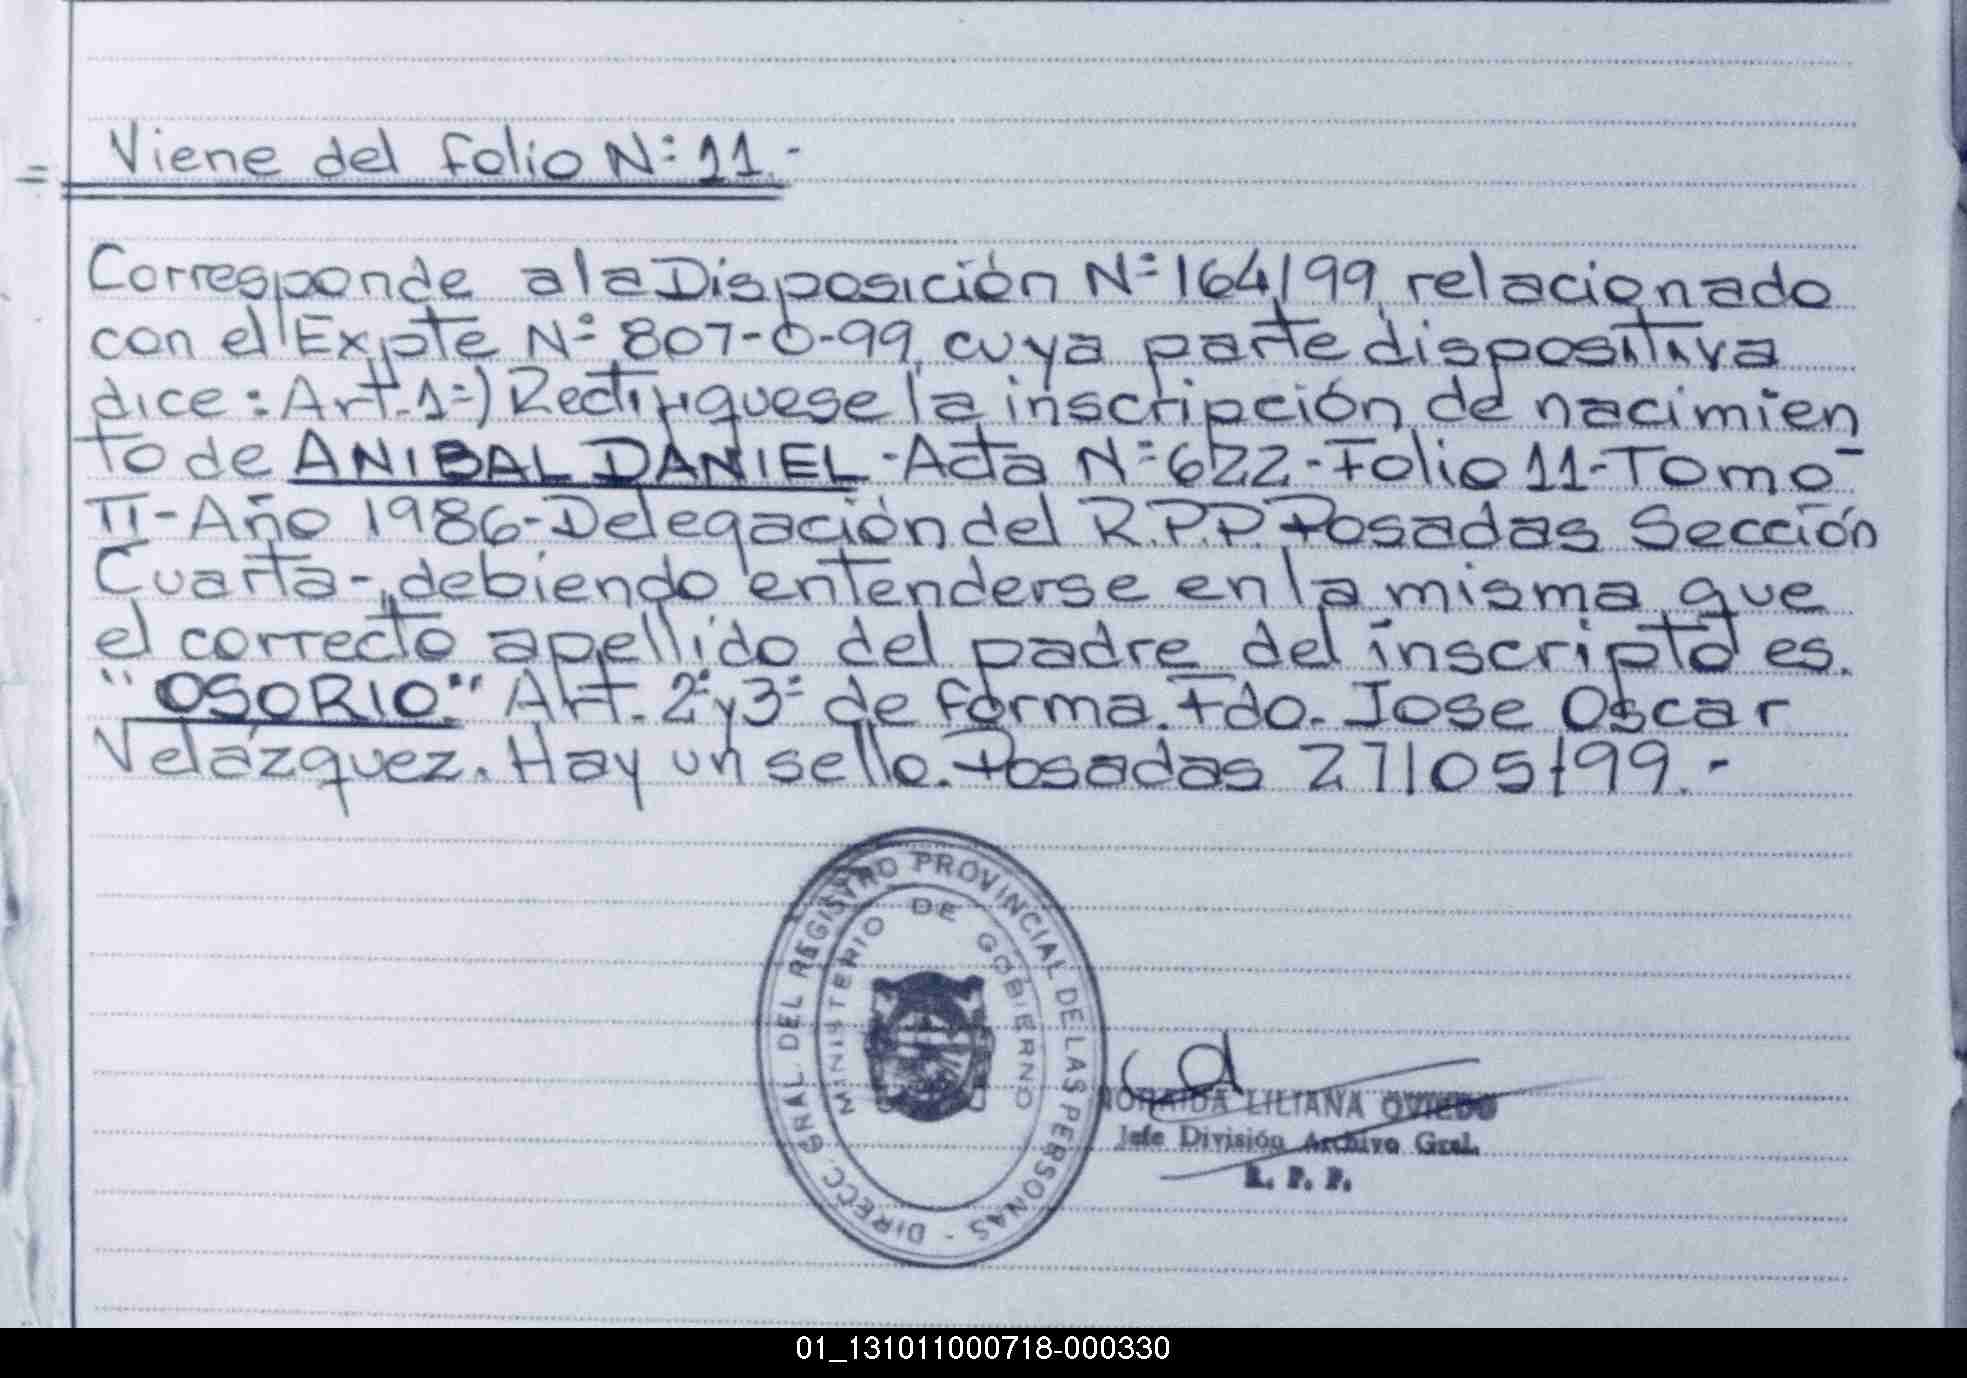 Viene del folio N° 11.-
Corresponde a la Disposición N° 164/99, relacionado
con el Expte N° 807-O-99, cuya parte dispositiva
dice: Art. 1°) Rectifíquese la inscripción de nacimien
to de ANIBAL DANIEL - Acta N° 622 - Folio 11 - Tomo -
II - Año 1986 - Delegación del R.P.P. Posadas Sección
Cuarta -, debiendo entenderse en la misma que
el correcto apellido del padre del inscripto es.
"OSORIO." Art. 2° y 3° de forma. Fdo. Jose Oscar
Velázquez. Hay un sello. Posadas 27/05/99.-
DIRECC. GRAL. DEL REGISTRO PROVINCIAL DE LAS PERSONAS -
MINISTERIO DE GOBIERNO
LILIANA OVIEDO
Jefe División Archivo Gral.
R. P. P.
01_131011000718-000330